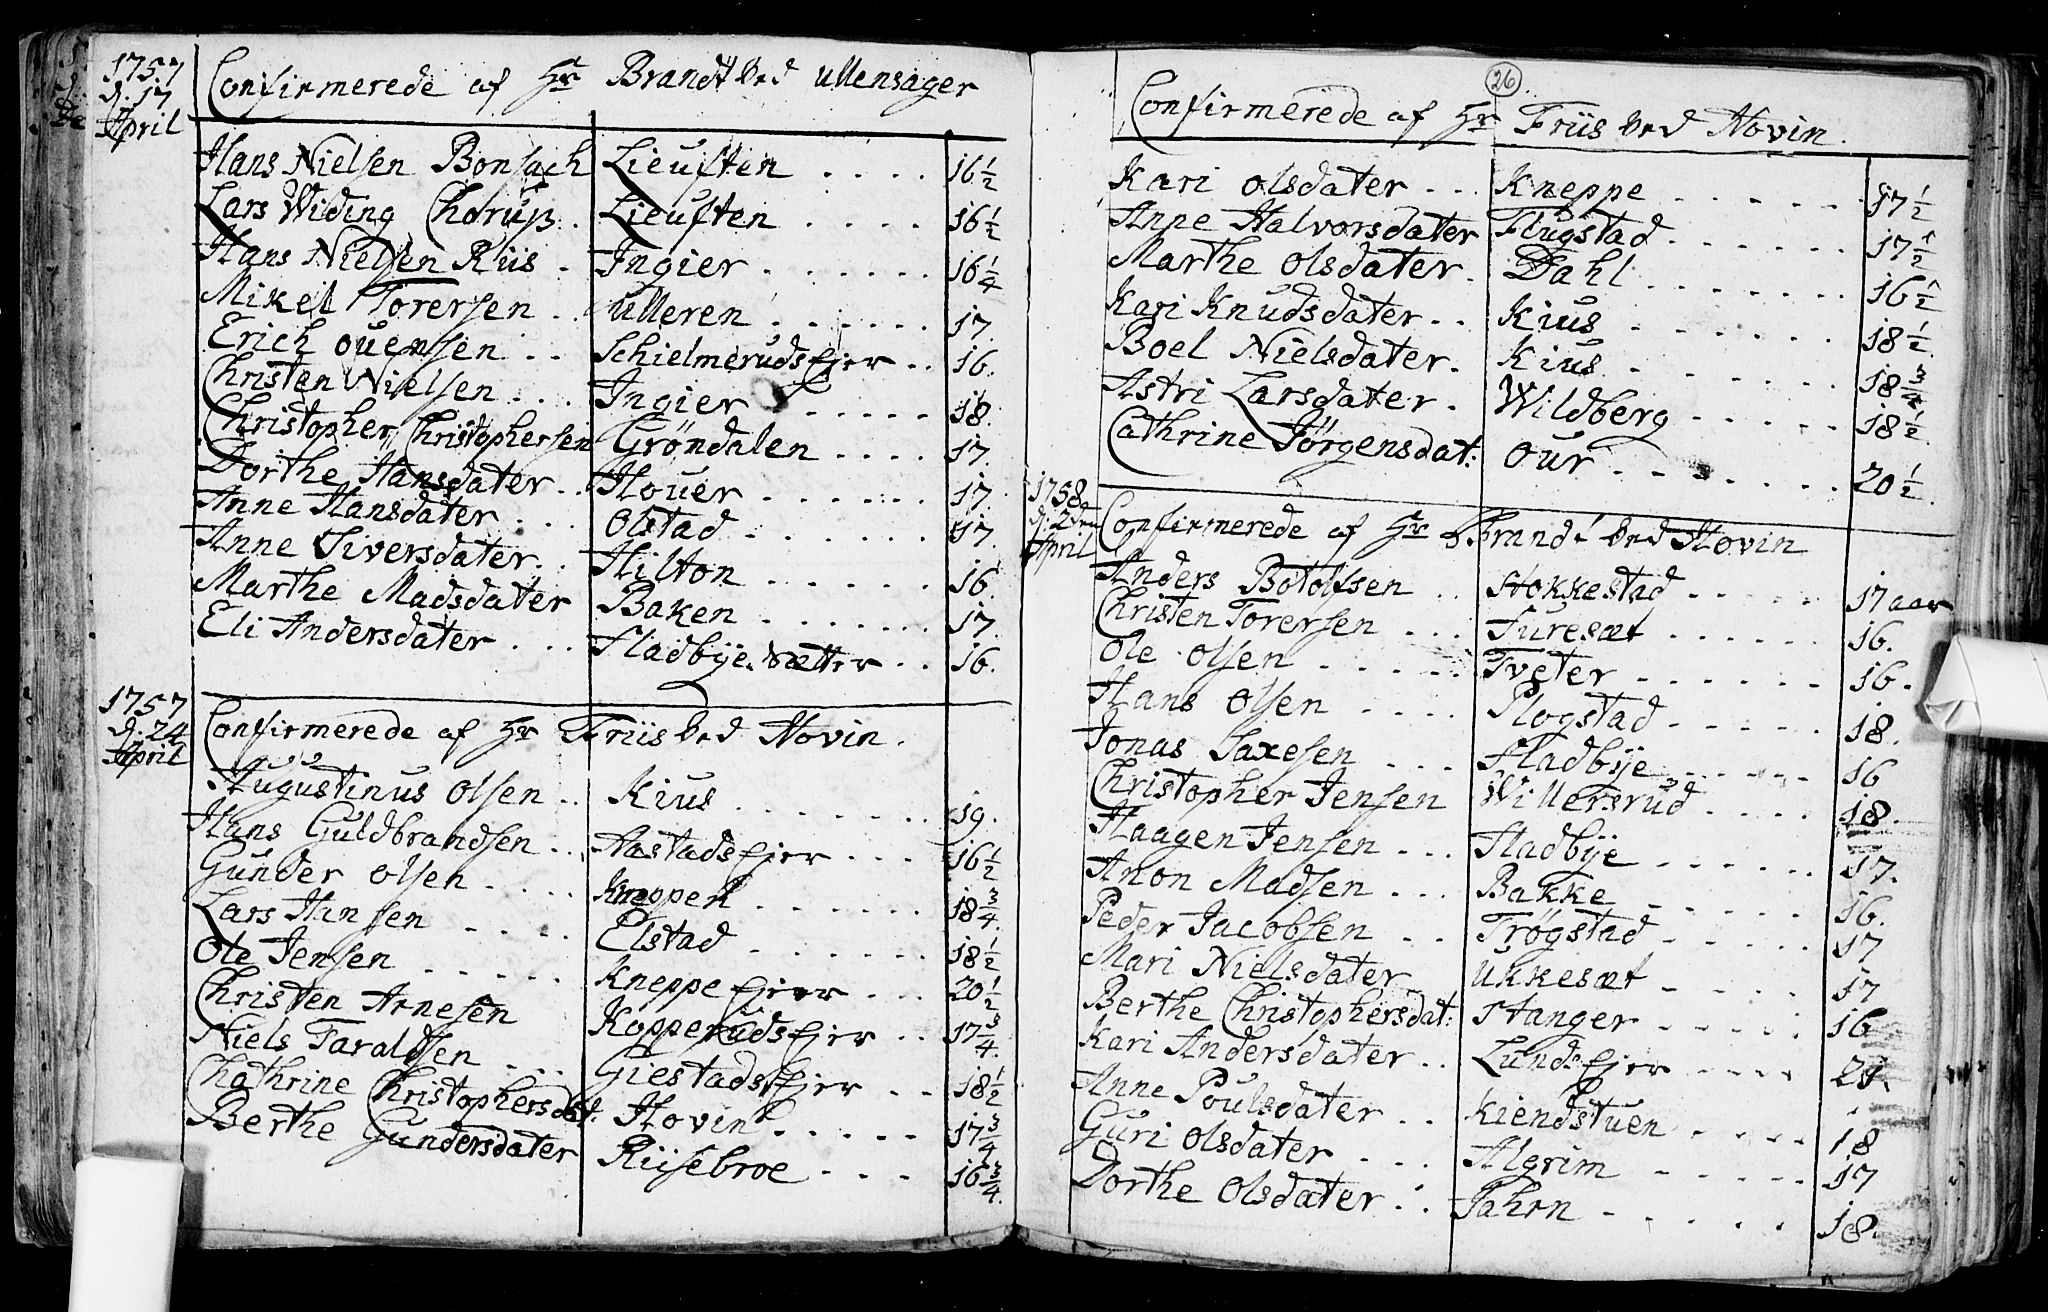 1757
d. 17
April
Confirmerede af Hr Brandt ved Ullensager
Hans Nielsen Bonsach Lieuften 16 1/2
Lars Widing Chorup Lieuften 16 1/2
Hans Nielsen Riis Ingier 16 1/4
Mikel Torersen Ulleren 17.
Erich Ouensen Schielmerudsejer 16.
Christen Nielsen Ingier 18.
Christopher Christophersen Gröndalen 17.
Dorthe Hansdater Houer 17.
Anne Hansdater Olstad 17.
Anne Siversdater Hilton 16.
Marthe Madsdater Baken 17.
Eli Andersdater Fladbye 16.
1757
d. 24
April
Confirmerede af Hr Friis ved Hovin.
Augustinus Olsen Kius 19.
Hans Guldbrandsen Aastadsejer 16 1/2
Gunder Olsen Kneppe 18 3/4.
Lars Hansen Elstad 18 1/2
Ole Jensen Kneppe Ejer 20 1/2
Christen Arnesen Kopperudsejer 17 3/4.
Niels Taraldsen Giestadsejer 18 1/2
Chathrine Christophersdat: Hovin 17 3/4
Berthe Gundersdater Riisebroe 16 3/4.
26
Confirmerede af Hr Friis ved Hovin.
Kari Olsdater Kneppe 17 1/2
Anne Halvorsdater Flugstad 17 1/2
Marthe Olsdater Dahl 16 1/2
Kari Knudsdater Kius 18 1/2.
Boel Nielsdater Kius 18 3/4
Astri Larsdater Wildberg 18 1/2.
Cathrine Jörgensdat: Our 20 1/2.
1758
d. 2den
April
Confirmerede af Hr Brandt ved Hovin
Anders Botolfsen Hokkestad 17 aar
Christen Torersen Furesæt 16.
Ole Olsen Tveter 16.
Hans Olsen Plogstad 18.
Jonas Saxesen Fladbye 16
Christopher Jensen Willersrud 18.
Haagen Jensen Fladbye 17.
Amon Madsen Bakke 16.
Peder Jacobsen Trøgstad 17
Mari Nielsdater Ukkesæt 17
Berthe Christophersdat: Hanger 16
Kari Andersdater Lundsejer 21.
Anne Poulsdater Kiendstuen 18
Guri Olsdater Algrim 17
Dorthe Olsdater Jahrn 18.